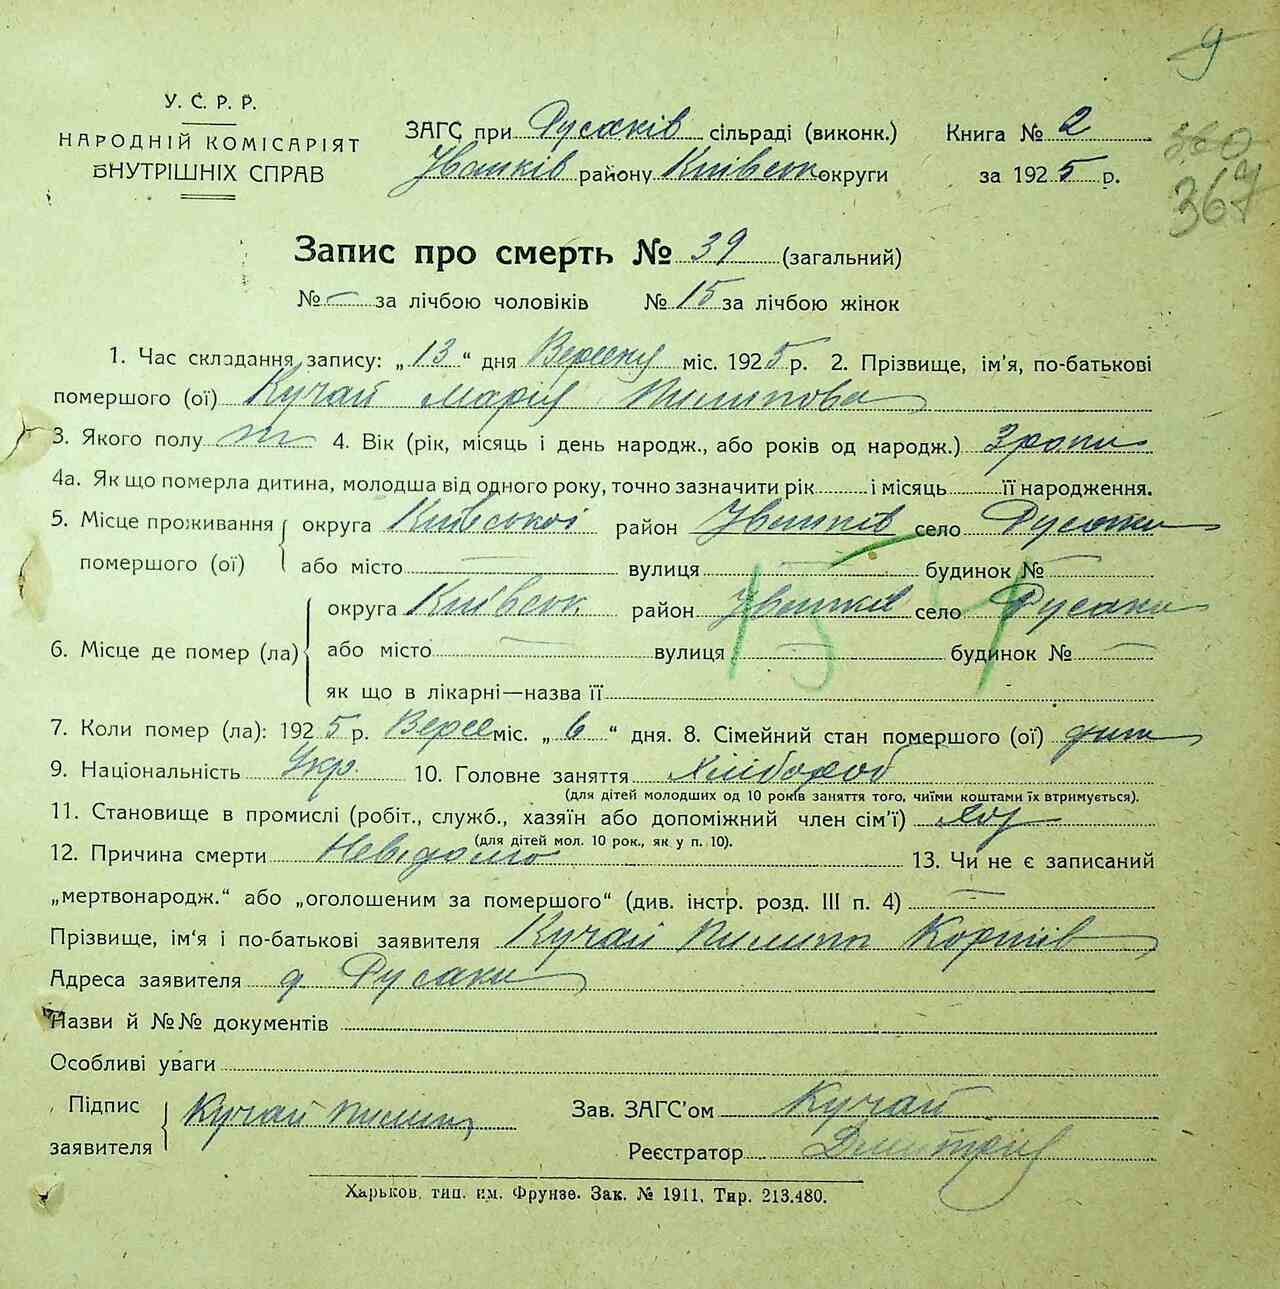 9
У. С. Р. Р.
НАРОДНІЙ КОМІСАРІЯТ
ВНУТРІШНІХ СПРАВ
ЗАГС при Русаків сільраді (виконк.) Книга № 2
360
Іванків району Київськ округи за 1925 р.
367
Запис про смерть № 39 (загальний)
№ — за лічбою чоловіків № 15 за лічбою жінок
1. Час складання запису: „13“ дня Вересня міс. 1925 р. 2. Прізвище, ім'я, по-батькові
помершого (ої) Кучай Марія Пилипова
3. Якого полу ж 4. Вік (рік, місяць і день народж., або років од народж.) 3 роки
4а. Як що померла дитина, молодша від одного року, точно зазначити рік і місяць її народження.
5. Місце проживання помершого (ої) округа Київської район Іванків село Русаки
або місто — вулиця — будинок № —
6. Місце де помер (ла) округа Київськ район Іванків село Русаки
або місто — вулиця — будинок № —
як що в лікарні—назва її
154
7. Коли помер (ла): 1925 р. Верес міс. „6“ дня. 8. Сімейний стан помершого (ої) дит
9. Національність Укр. 10. Головне заняття Хлібороб
(для дітей молодших од 10 років заняття того, чиїми коштами їх втримується).
11. Становище в промислі (робіт., служб., хазяїн або допоміжний член сім'ї) хаз
(для дітей мол. 10 рок., як у п. 10).
12. Причина смерти Невідомо 13. Чи не є записаний
„мертвонародж.“ або „оголошеним за помершого“ (див. інстр. розд. III п. 4) —
Прізвище, ім'я і по-батькові заявителя Кучай Пилип
Адреса заявителя Русаки
Назви й №№ документів
Особливі уваги
Підпис заявителя Кучай Пилип Зав. ЗАГС'ом Кучай
Реєстратор
Харьков, тип. им. Фрунзе. Зак. № 1911, Тир. 213.480.